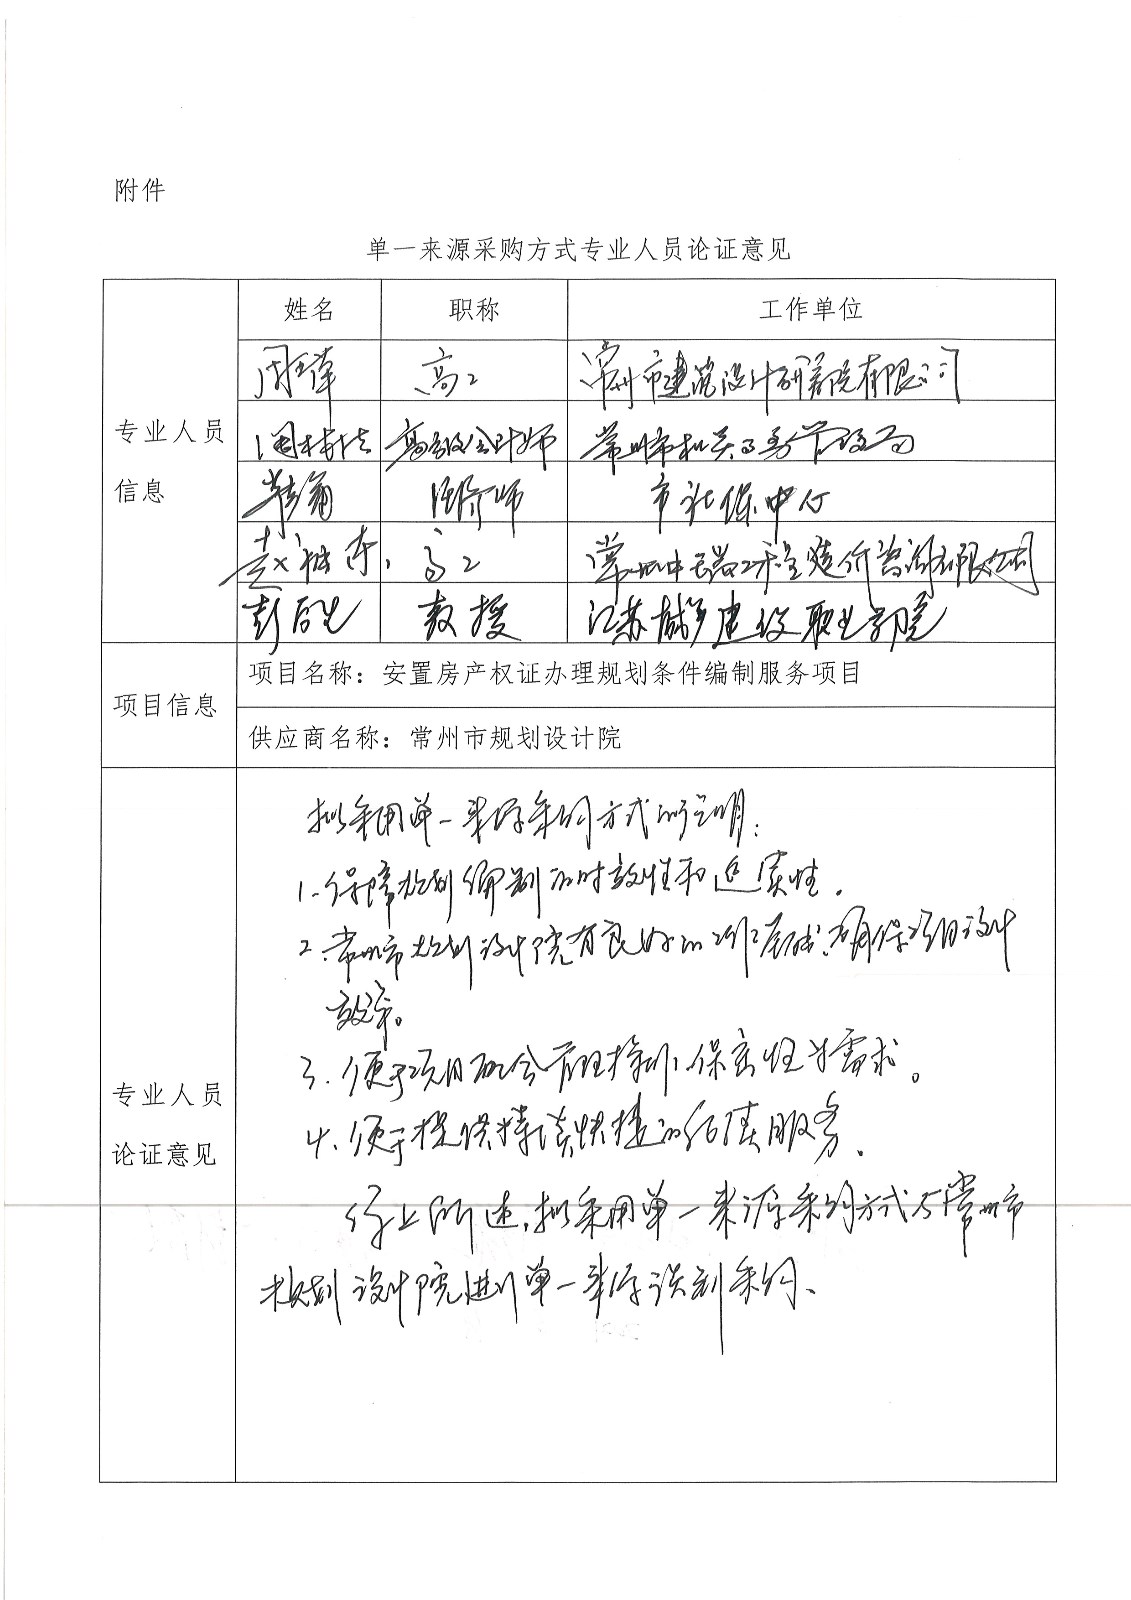 附件
单一来源采购方式专业人员论证意见
姓名 职称 工作单位
高工 常州市建筑设计研究院有限公司
专业人员 高级会计师 常州市机关事务管理局
信息 经济师 市社保中心
高工 常州中瑞工程造价咨询有限公司
教授 江苏城乡建设职业学院
项目信息
项目名称：安置房产权证办理规划条件编制服务项目
供应商名称：常州市规划设计院
拟采用单一来源采购方式的说明：
1.保障规划编制的时效性和连续性。
2.常州市规划设计院有良好的工作基础，确保项目设计
效率。
3.便于项目配合管理操作，保密性等需求。
专业人员
论证意见
4.便于提供持续快捷的后续服务。
综上所述，拟采用单一来源采购方式与常州市
规划设计院进行单一来源谈判采购、